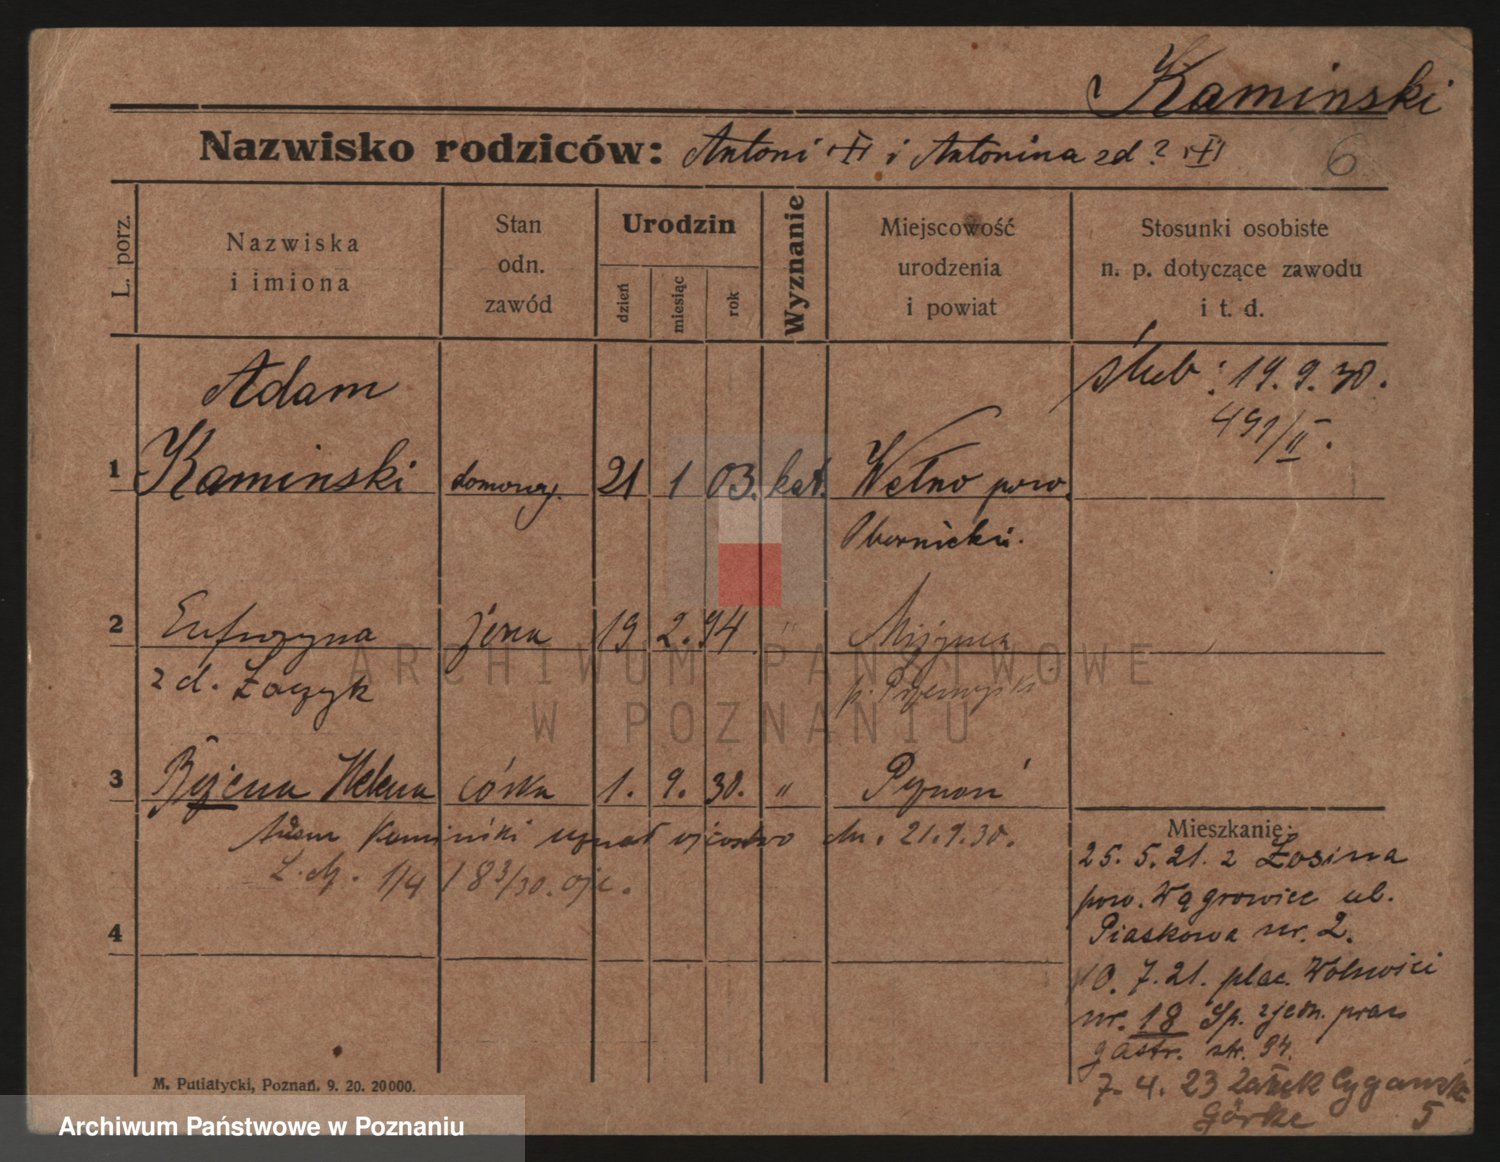 Kaminski
Nazwisko rodziców: Antoni i Antonina zd?
6
L. porz.
Nazwiska
i imiona
Stan
odn.
zawód
Urodzin
dzień
miesiąc
rok
Wyznanie
Miejscowość
urodzenia
i powiat
Stosunki osobiste
n. p. dotyczące zawodu
i t. d.
Adam
1 Kaminski domowy. 21 1 03. kat. Wełno pow.
Obornicki.
ślub: 19. 9. 30.
491/II.
2 Eufrozyna żona 19 2. 94 "
z d. Łaczyk
3 Bożena Helena córka 1. 9. 30. " Poznań
Adam Kaminski uznał ojcostwo dn. 21. 9. 30.
4
Mieszkanie:
25. 5. 21. z Łosina
pow. Wągrowiec ul.
Piaskowa nr. 2.
10. 7. 21. plac. Wolności
nr. 18 Sp. zjedn. prac
gastr. str. 94.
7. 4. 23 Zamek Cygański
Górka 5
M. Putiatycki, Poznań. 9. 20. 20000.
ARCHIWUM PAŃSTWOWE
W POZNANIU
Archiwum Państwowe w Poznaniu